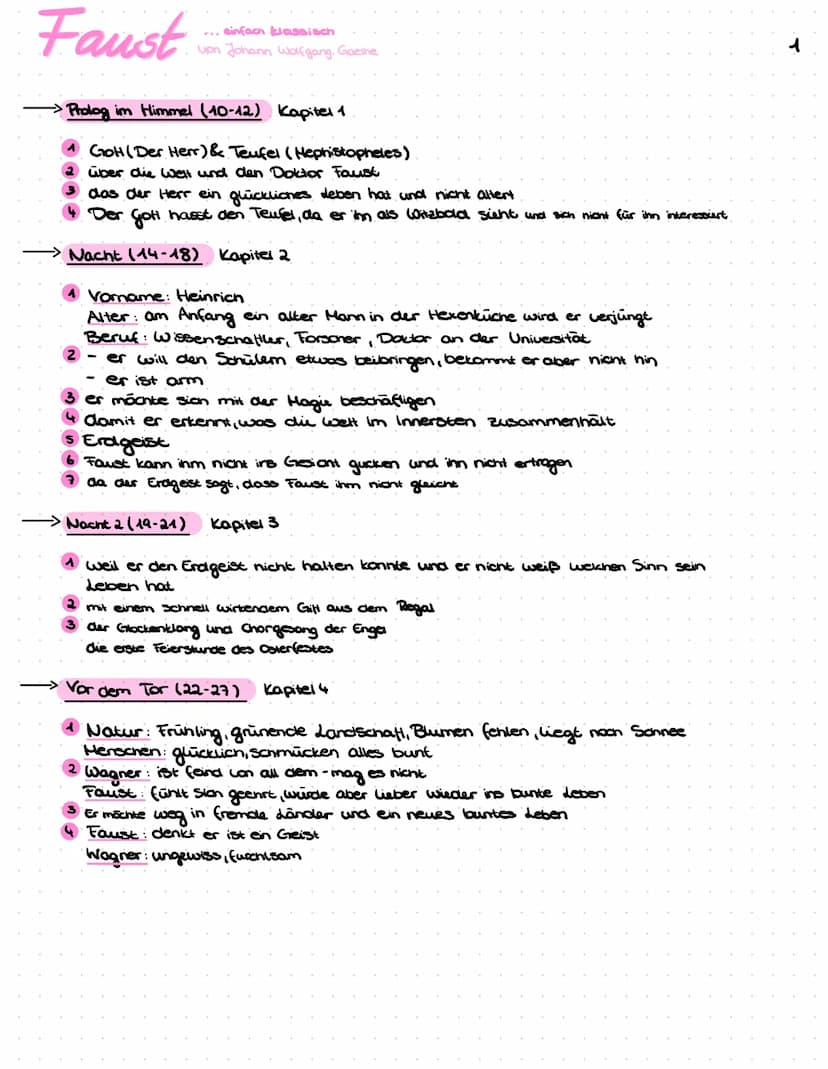 Faust ... einfach klassisch
von Johann Wolfgang. Goethe
1
→ Prolog im Himmel (10-12) Kapitel 1
1 Gott (Der Herr) & Teufel (Mephistopheles)
2 über die Welt und den Doktor Faust
3 das der Herr ein glückliches Leben hat und nicht altert
4 Der Gott hasst den Teufel, da er ihn als Witzbold sieht und sich nicht für ihn interessiert
→ Nacht (14-18) Kapitel 2
1 Vorname: Heinrich
Alter: am Anfang ein alter Mann in der Hexenküche wird er verjüngt
Beruf: Wissenschaftler, Forscher, Doktor an der Universität
2 - er will den Schülern etwas beibringen, bekommt er aber nicht hin
- er ist arm
3 er möchte sich mit der Magie beschäftigen
4 damit er erkennt, was die Welt im Innersten zusammenhält
5 Erdgeist
6 Faust kann ihm nicht ins Gesicht gucken und ihn nicht ertragen
7 da der Erdgeist sagt, dass Faust ihm nicht gleiche
→ Nacht 2 (19-21) Kapitel 3
1 weil er den Erdgeist nicht halten konnte und er nicht weiß welchen Sinn sein
Leben hat
2 mit einem schnell wirkendem Gift aus dem Regal
3 der Glockenklang und Chorgesang der Engel
die erste Feierstunde des Osterfestes
→ Vor dem Tor (22-27) Kapitel 4
1 Natur: Frühling, grünende Landschaft, Blumen fehlen, liegt noch Schnee
Menschen: glücklich, schmücken alles bunt
2 Wagner: ist feind von all dem - mag es nicht
Faust: fühlt sich geehrt, würde aber lieber wieder ins bunte Leben
3 Er möchte weg in fremde Länder und ein neues buntes Leben
4 Faust: denkt er ist ein Geist
Wagner: ungewiss, furchtsam